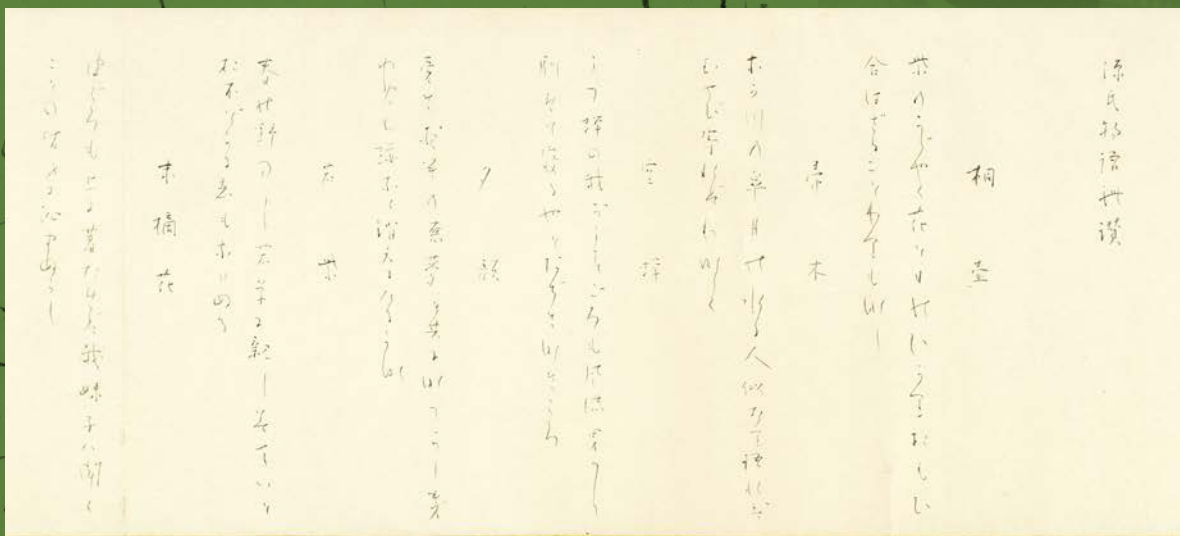 源氏物語礼讃
桐壺
紫のかゞやく花と日の光おもひ
合はざることわりもなし
帚木
中川の皐月の水に人似たり語れば
むせび寄ればわなゝく
空蝉
うつ蝉の我がうすごろも風流男に
馴れて寝るやとあぢきなきころ
夕顔
の悪夢と共になつかしき
若紫
春の野のうら若草に親しみていと
おほどかに恋もなりぬ
末摘花
皮ごろも上に着たれば我妹子は聞く
ことの皆身に沁まぬらし